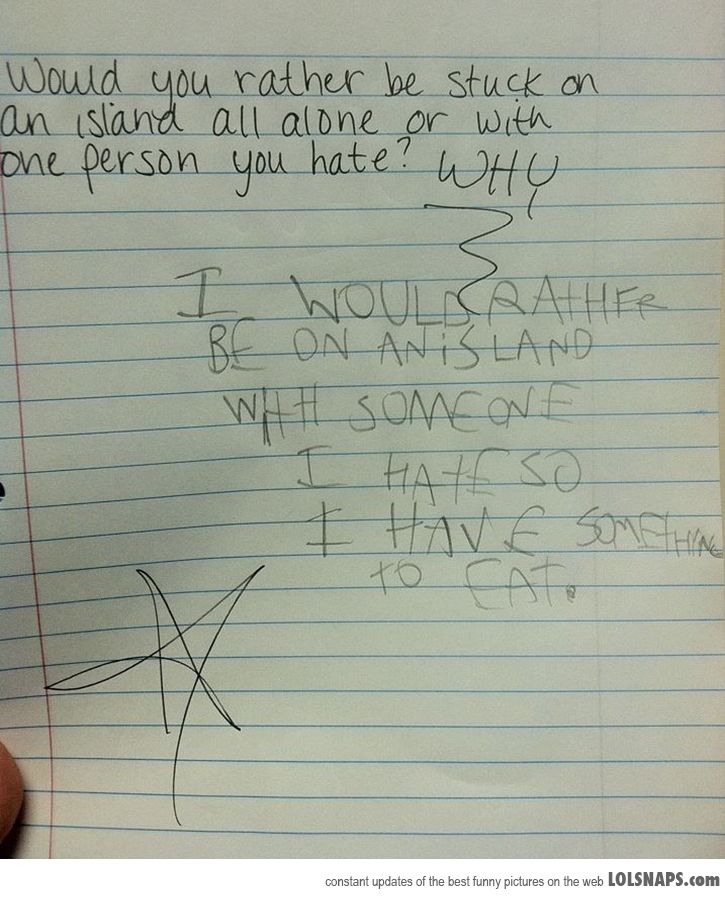 Would you rather be stuck on
an island all alone or with
one person you hate? WHY
I WOULD RATHER
BE ON AN iSLAND
WITH SOMEONE
I HATE SO
I HAVE SOMETHING
TO EAT.
constant updates of the best funny pictures on the web LOLSNAPS.com